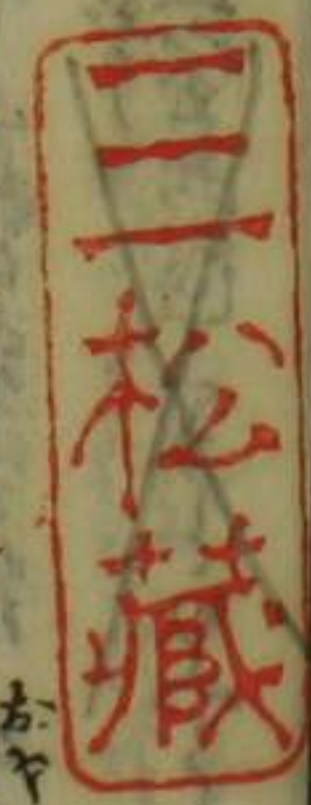 三松藏